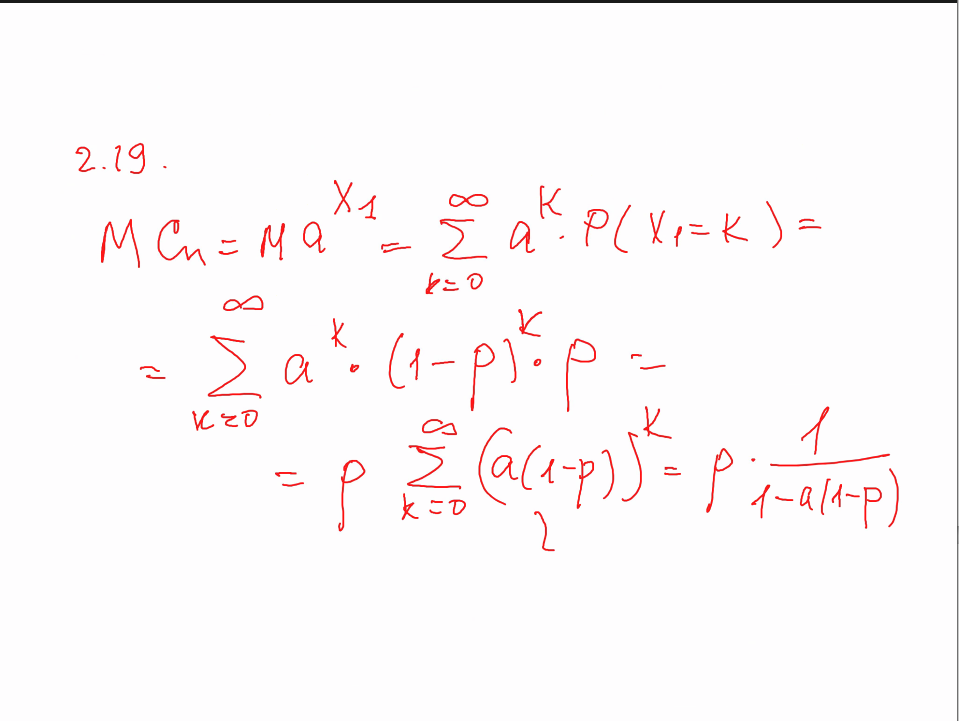 2.19.
M Cn = M a^{X_1} = \sum_{k=0}^{\infty} a^k · P(X_1 = k) =
= \sum_{k=0}^{\infty} a^k · (1-p)^k · p =
= p \sum_{k=0}^{\infty} (a(1-p))^k = p · \frac{1}{1-a(1-p)}
2